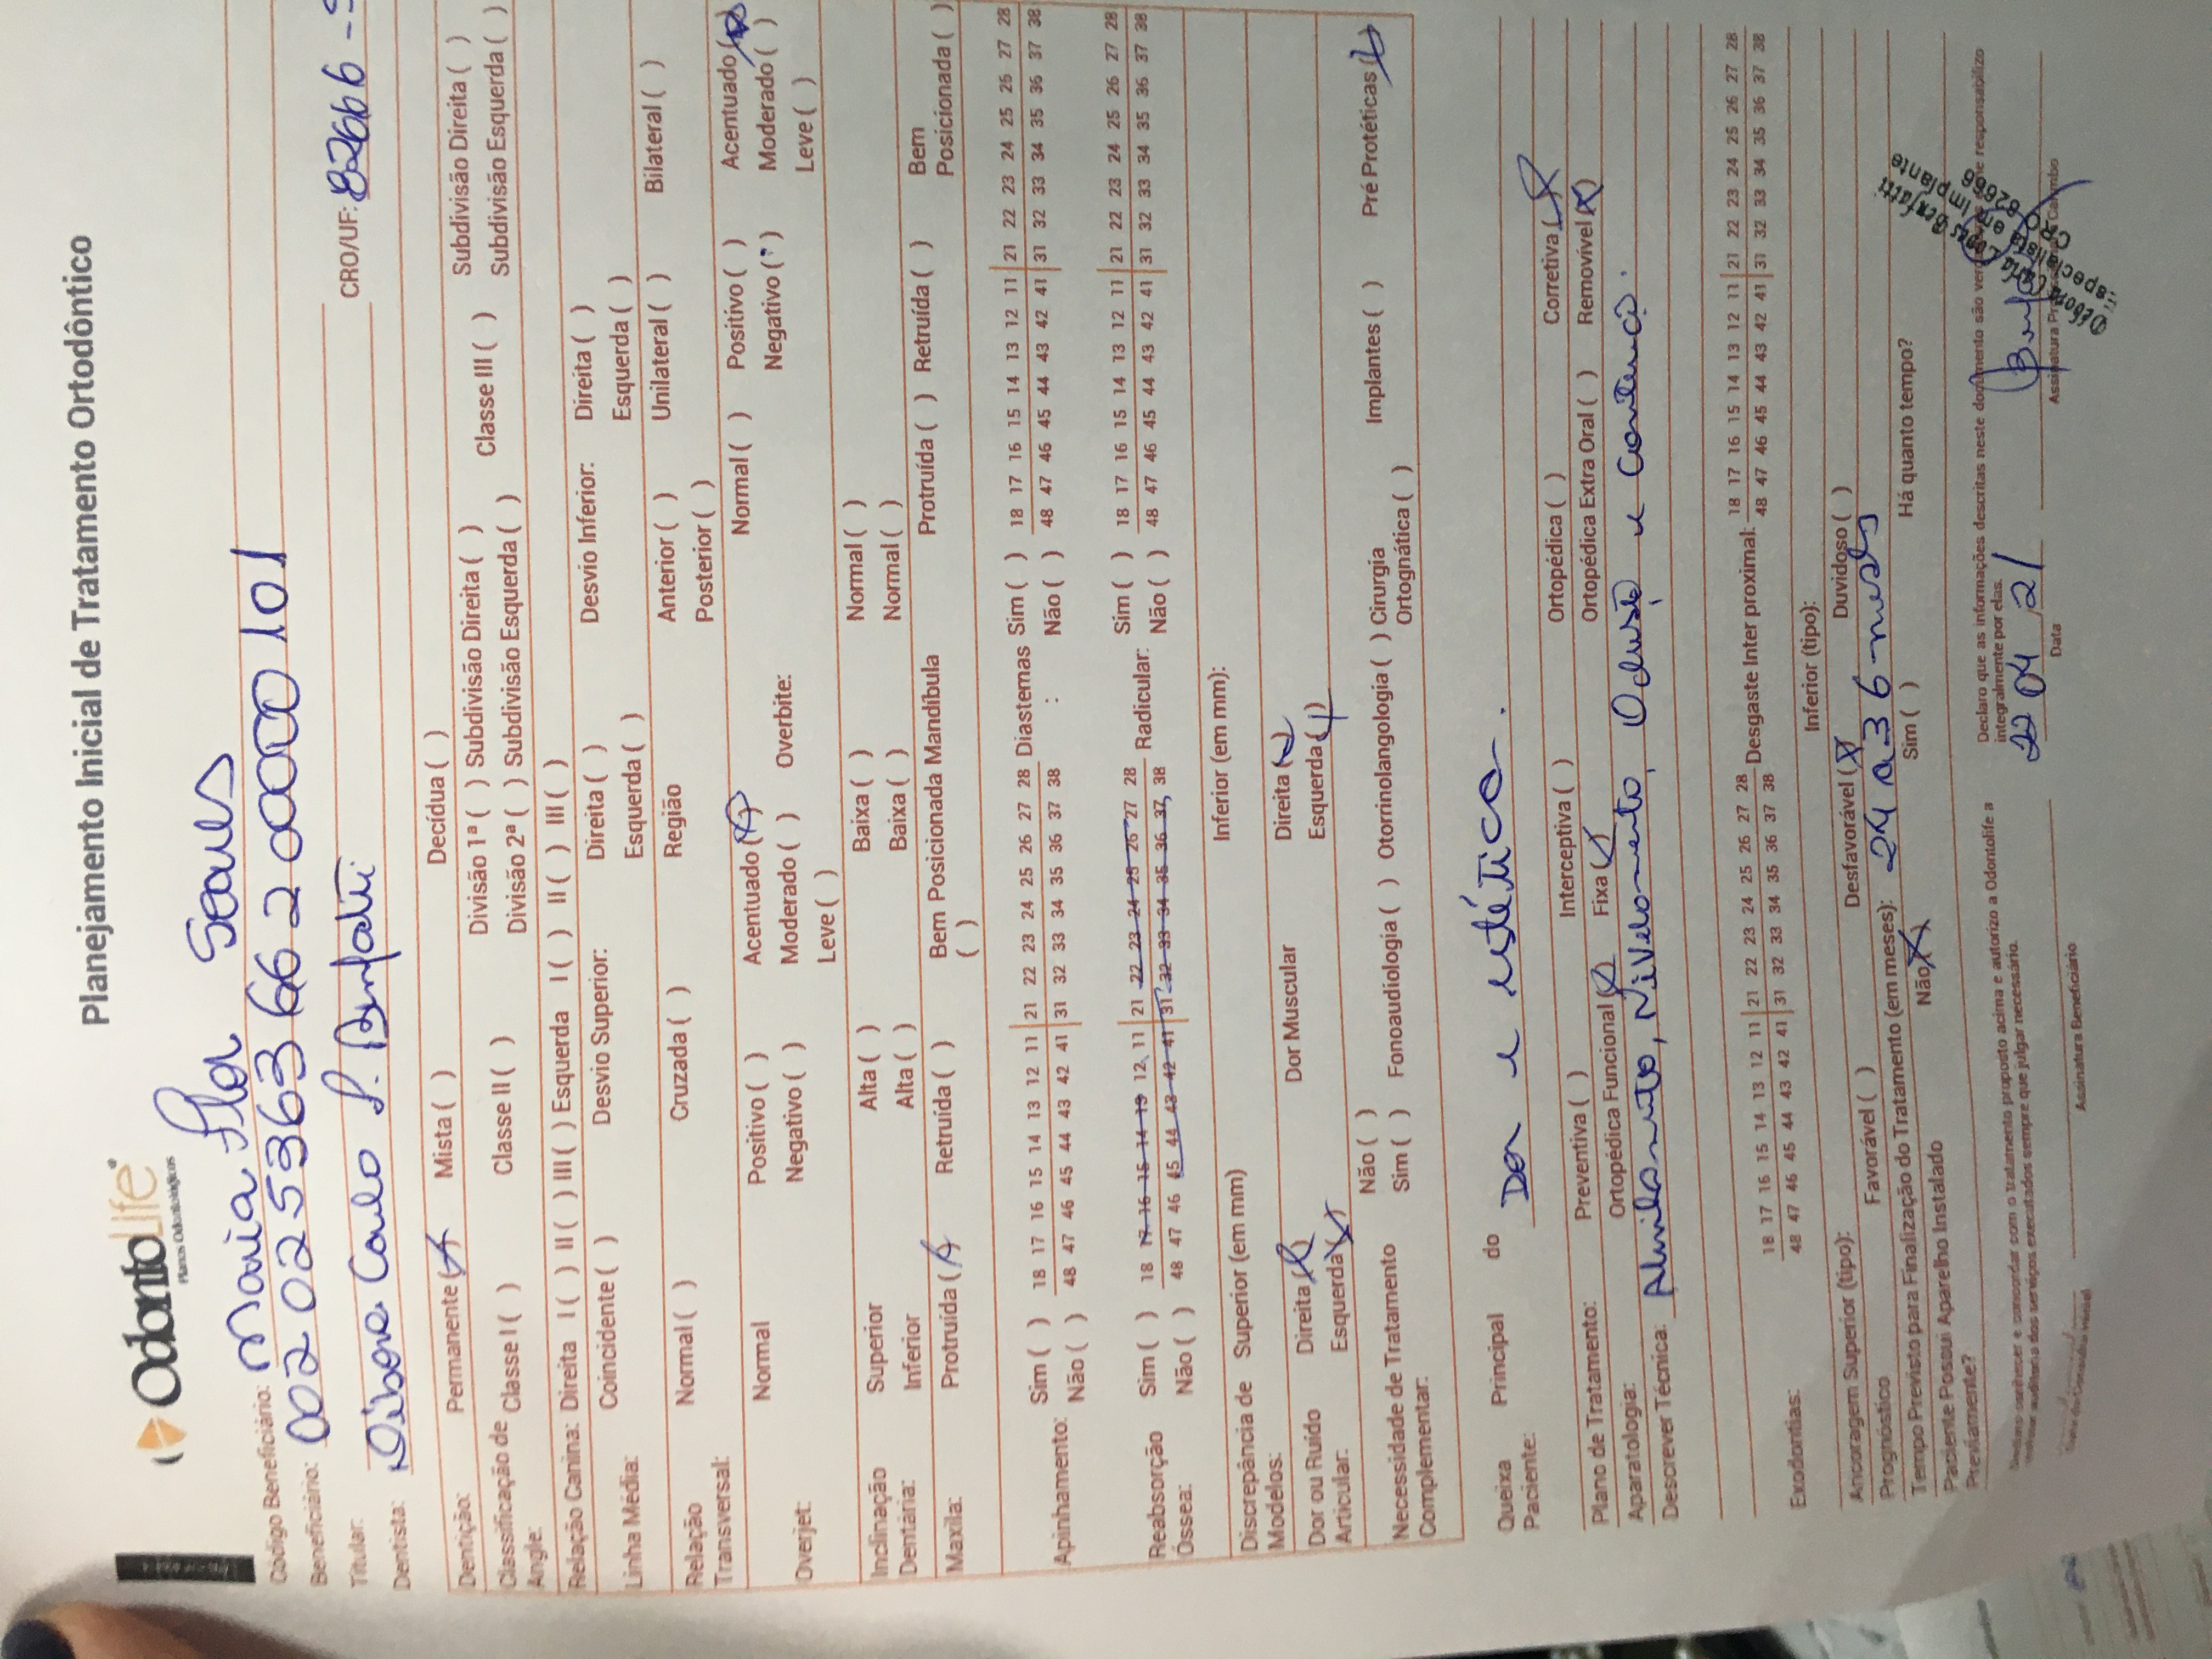 Planejamento Inicial de Tratamento Ortodôntico
OdontoLife
Planos Odontológicos
Código Beneficiário: Maria Flor Soares
Beneficiário: 002 025363 66 2 0000 101
Titular:
Dentista: Débora Carla L. Benfatti CRO/UF: 82666 -
Dentição: Permanente (X) Mista ( ) Decídua ( )
Classificação de Angle: Classe I ( ) Classe II ( ) Divisão 1ª ( ) Subdivisão Direita ( ) Classe III ( ) Subdivisão Direita ( )
Divisão 2ª ( ) Subdivisão Esquerda ( ) Subdivisão Esquerda ( )
Relação Canina: Direita I ( ) II ( ) III ( ) Esquerda I ( ) II ( ) III ( )
Linha Média: Coincidente ( ) Desvio Superior: Direita ( ) Desvio Inferior: Direita ( )
Esquerda ( ) Esquerda ( )
Relação Transversal: Normal ( ) Cruzada ( ) Região Anterior ( ) Unilateral ( ) Bilateral ( )
Posterior ( )
Overjet: Normal Positivo ( ) Acentuado (X) Overbite: Normal ( ) Positivo ( ) Acentuado (X)
Negativo ( ) Moderado ( ) Negativo ( ) Moderado ( )
Leve ( ) Leve ( )
Inclinação Dentária: Superior Alta ( ) Baixa ( ) Normal ( )
Inferior Alta ( ) Baixa ( ) Normal ( )
Maxila: Protruída (X) Retruída ( ) Bem Posicionada ( ) Mandíbula Protruída ( ) Retruída ( ) Bem Posicionada ( )
Apinhamento: Sim ( ) 18 17 16 15 14 13 12 11 21 22 23 24 25 26 27 28 Diastemas : Sim ( ) 18 17 16 15 14 13 12 11 21 22 23 24 25 26 27 28
Não ( ) 48 47 46 45 44 43 42 41 31 32 33 34 35 36 37 38 Não ( ) 48 47 46 45 44 43 42 41 31 32 33 34 35 36 37 38
Reabsorção Óssea: Sim ( ) 18 17 16 15 14 13 12 11 21 22 23 24 25 26 27 28 Radicular: Sim ( ) 18 17 16 15 14 13 12 11 21 22 23 24 25 26 27 28
Não ( ) 48 47 46 45 44 43 42 41 31 32 33 34 35 36 37 38 Não ( ) 48 47 46 45 44 43 42 41 31 32 33 34 35 36 37 38
Discrepância de Modelos: Superior (em mm) Inferior (em mm):
Dor ou Ruído Articular: Direita (X) Dor Muscular Direita (X)
Esquerda (X) Esquerda (X)
Necessidade de Tratamento Complementar: Não ( )
Sim ( ) Fonoaudiologia ( ) Otorrinolangologia ( ) Cirurgia Ortognática ( ) Implantes ( ) Pré Protéticas (X)
Queixa Principal do Paciente: Dor e estética.
Plano de Tratamento: Preventiva ( ) Interceptiva ( ) Ortopédica ( ) Corretiva (X)
Aparatologia: Ortopédica Funcional (X) Fixa (X) Ortopédica Extra Oral ( ) Removível (X)
Descrever Técnica: Alinhamento, Nivelamento, Oclusão e Contenção.
18 17 16 15 14 13 12 11 21 22 23 24 25 26 27 28 Desgaste Inter proximal: 18 17 16 15 14 13 12 11 21 22 23 24 25 26 27 28
Exodontias: 48 47 46 45 44 43 42 41 31 32 33 34 35 36 37 38 48 47 46 45 44 43 42 41 31 32 33 34 35 36 37 38
Ancoragem Superior (tipo): Inferior (tipo):
Prognóstico Favorável ( ) Desfavorável (X) Duvidoso ( )
Tempo Previsto para Finalização do Tratamento (em meses): 24 a 36 meses
Paciente Possui Aparelho Instalado Previamente? Não (X) Sim ( ) Há quanto tempo?
concordar com o tratamento proposto acima e autorizo a Odontolife a
dos serviços executados sempre que julgar necessário.
Declaro que as informações descritas neste documento são me responsabilizo
integralmente por elas.
22 04 21
Assinatura Beneficiário
Data
Débora Carla Lopes Benfatti
Especialista em Implante
CRO 82666